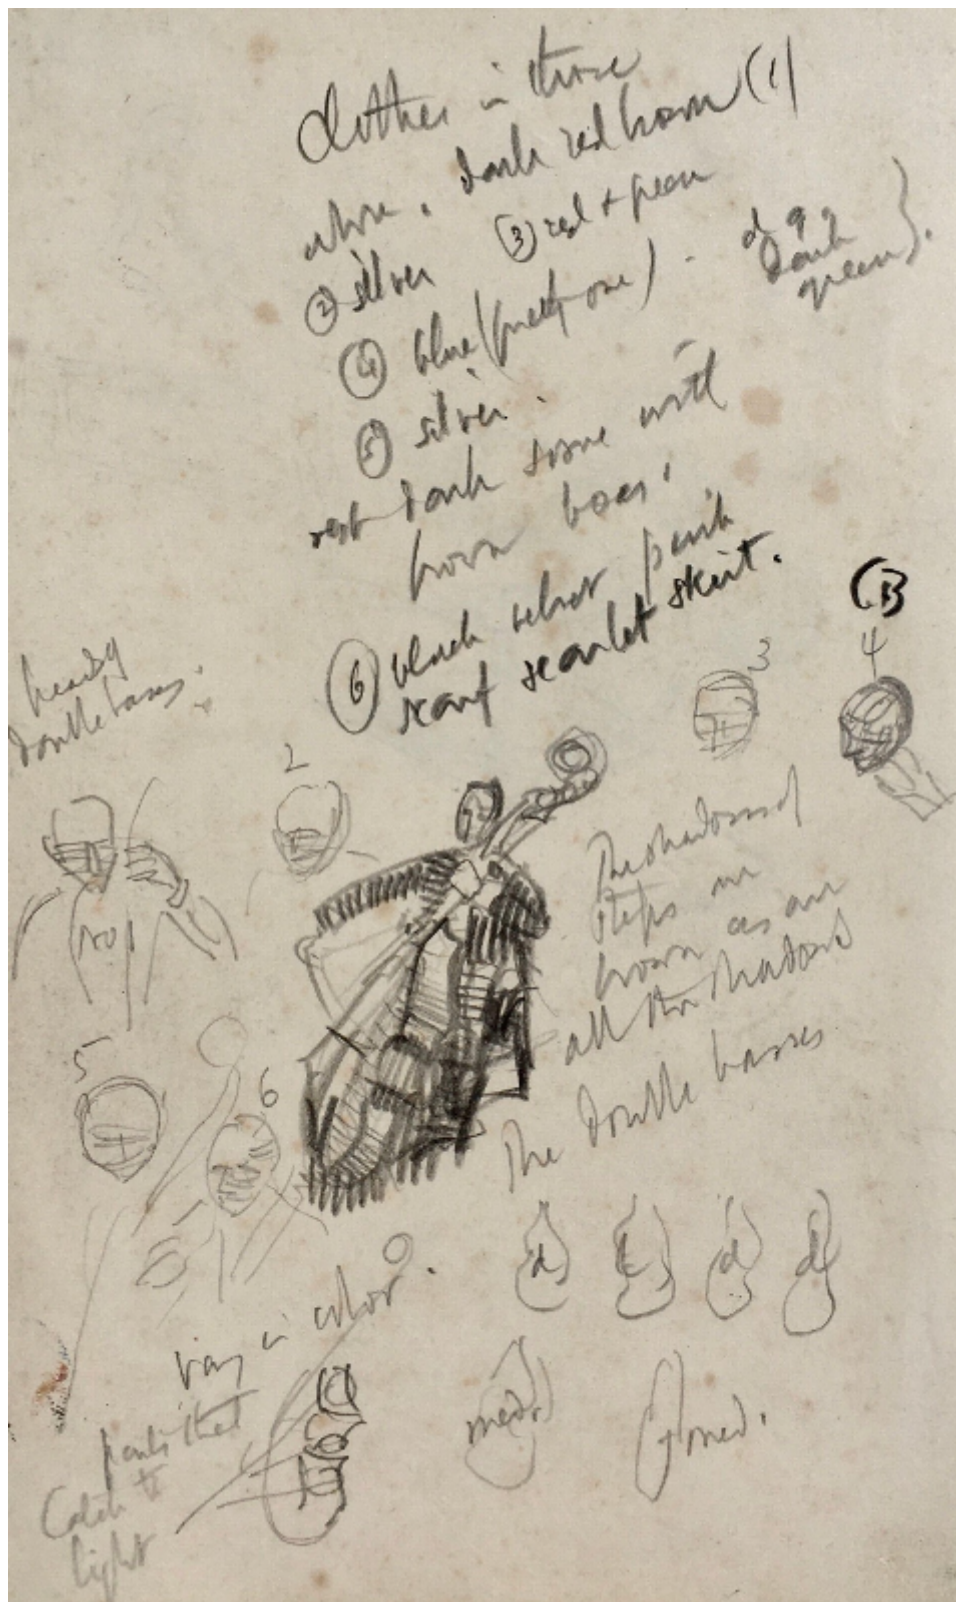 Clothes in those
above. dark red brown (1)
② silver ③ red + green
④ blue (pretty one) -
dark
green }.
⑤ silver.
rest dark some with
brown boas.
⑥ black velvet pink
scarf scarlet skirt.
(B
heads of
double basses.
2
3
4
5
6
The shadows of
steps are
brown as are
all the shadows
The double basses
d
d
d
vary in color.
parts that
Catch
light
med.
med.